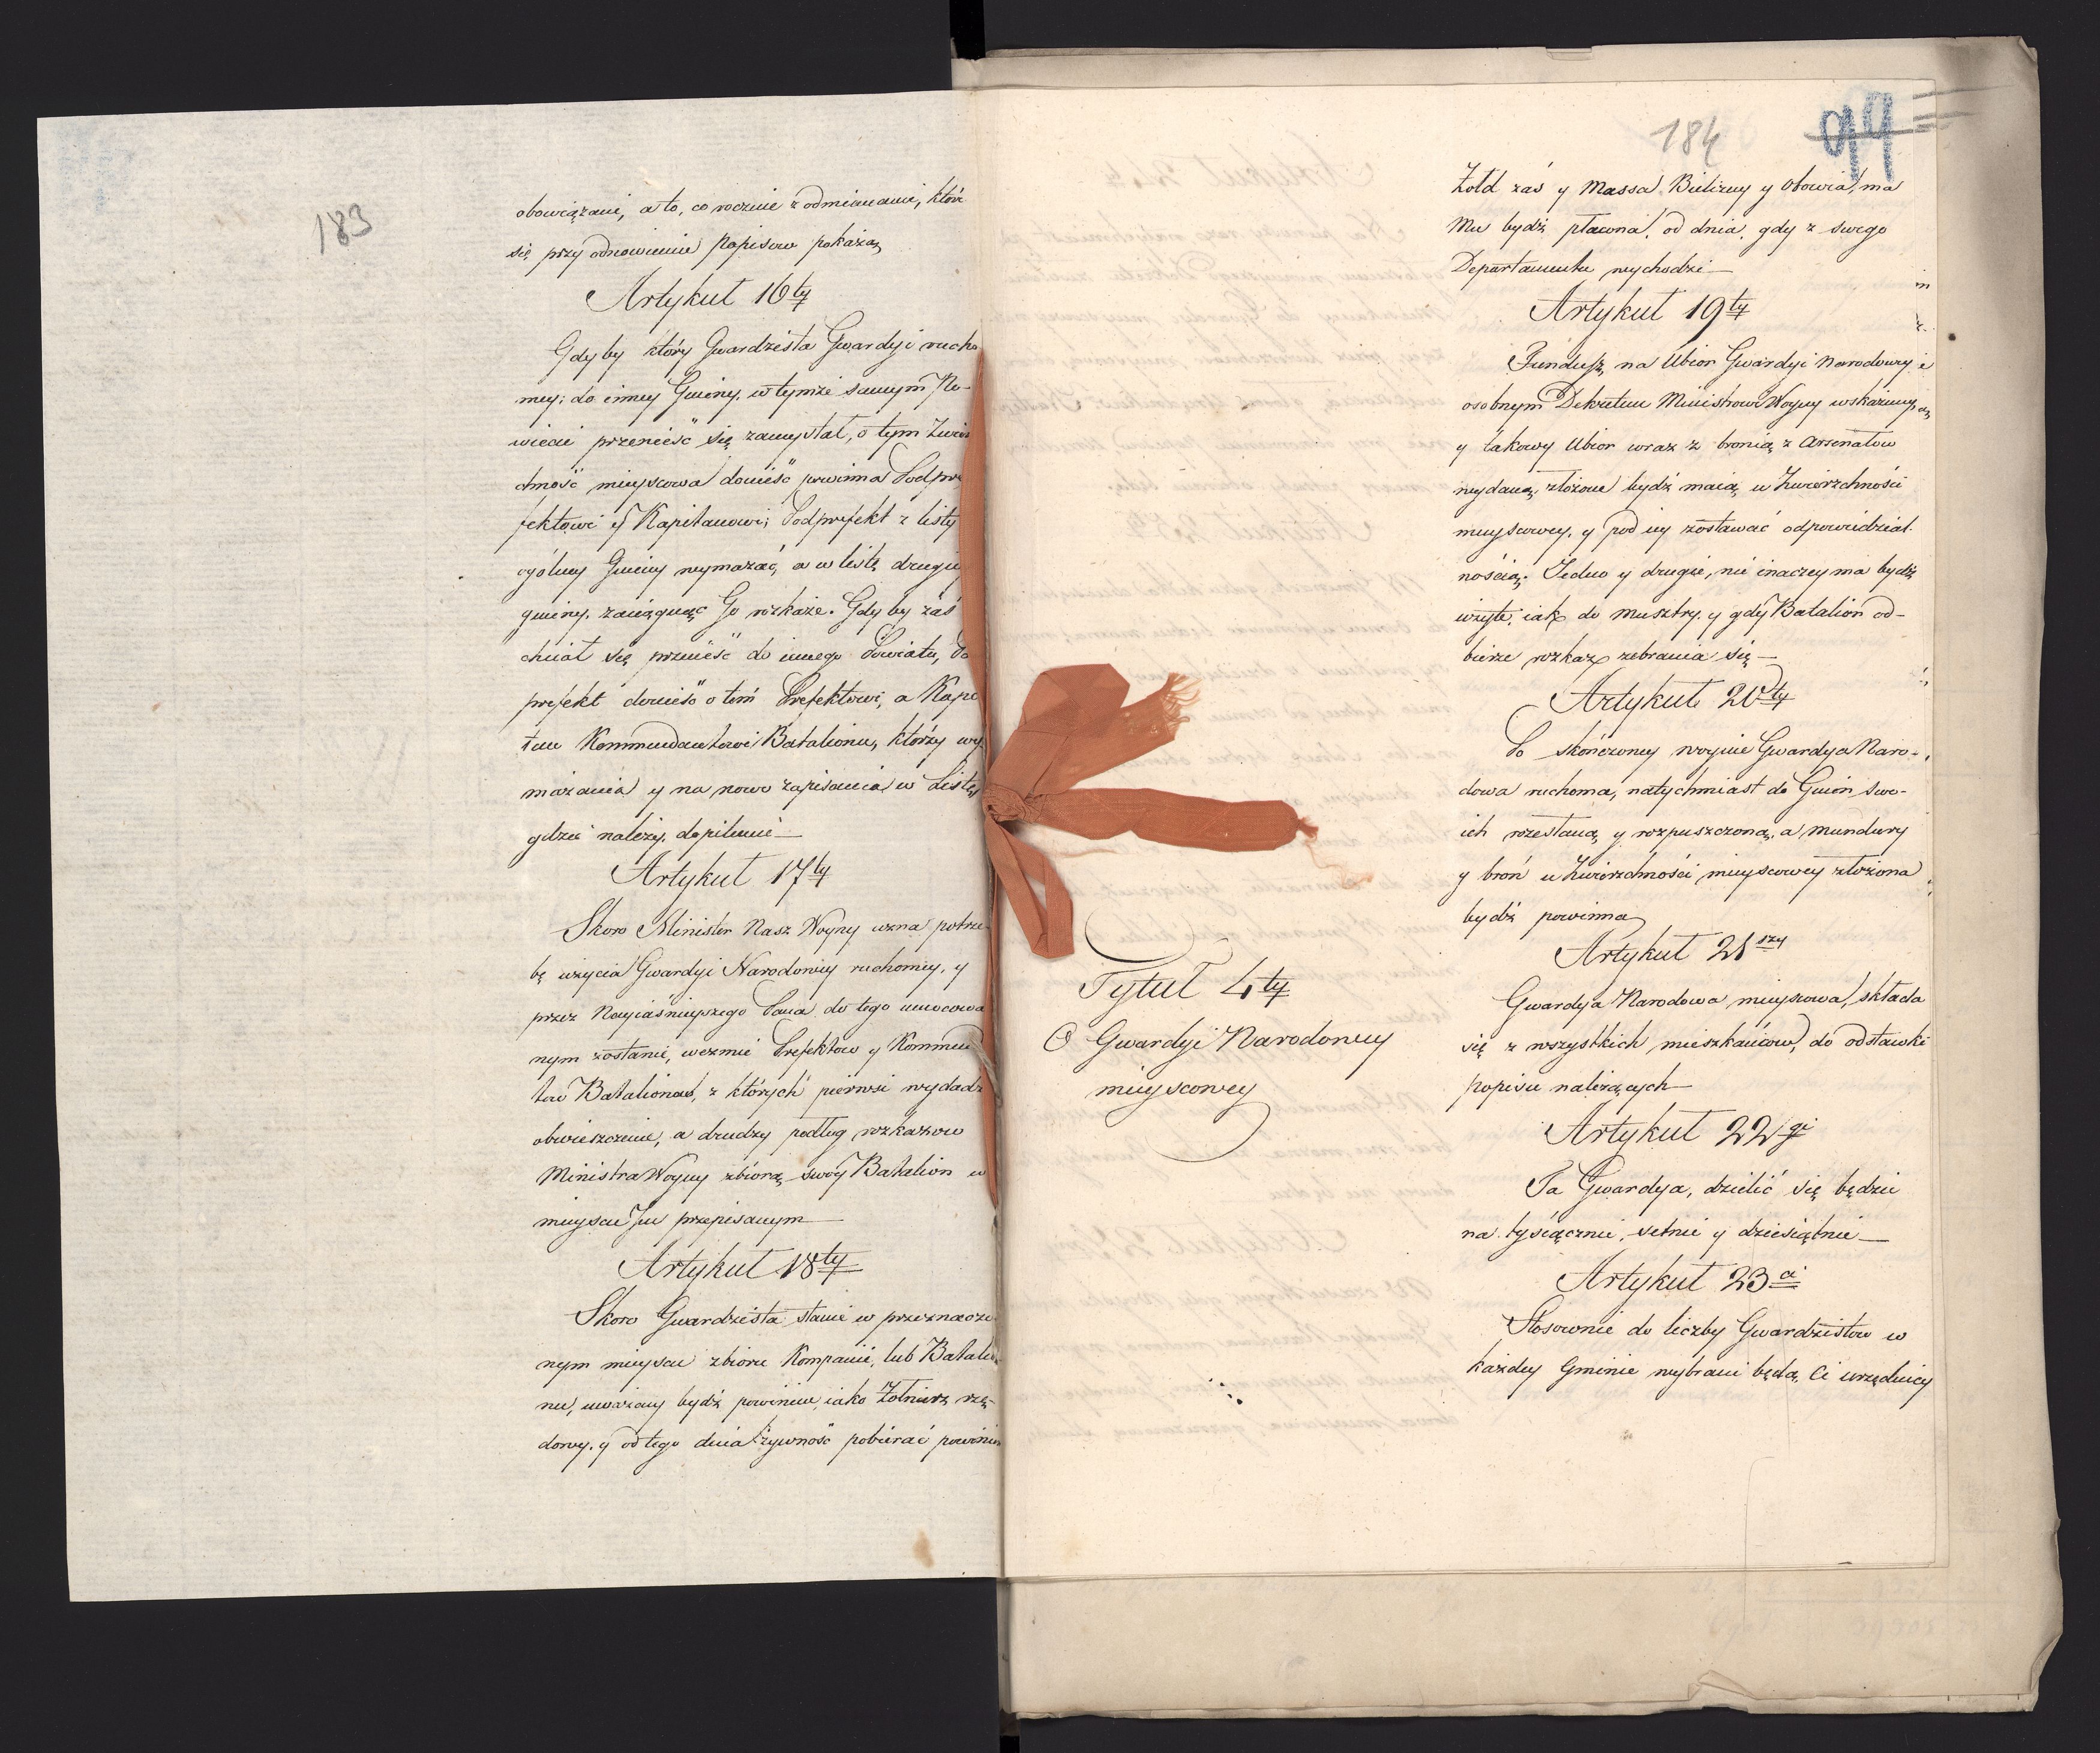 183
obowiązani, a to, co rocznie z odmianami, które
się przy odnowieniu Popisow pokażą
Artykuł 16ty
Gdy by który Gwardzista Gwardyi rucho
mey, do inney Gminy, w tymże samym Po-
wiecie przenieść się zamyslał, o tym Zwierz
chność mieyscowa donieść powinna Podpre
fektowi y Kapitanowi; Podprefekt z listy
ogólney Gminy wymazać, a w listę drugiey
gminy, zaciągnąć Go rozkaże. Gdy by zaś
chciał się przenieść do innego Powiatu, Pod
prefekt doniesie o tém Prefektowi, a Kapi
tan Kommendantowi Batalionu, którzy wy
mazania y na nowo zapisania w Listę,
gdzie należy, dopilnuie
Artykuł 17ty
Skoro Minister Nasz Woyny uzna potrze
bę użycia Gwardyi Narodowey ruchomey, y
przez Nayiaśnieyszego Pana do tego umocowa
nym zostanie, wezwie Prefektow y Kommen
tow Batalionow, z których pierwsi wydadzą
obwieszczenie, a drudzy podług rozkazow
Ministra Woyny zbiorą swóy Batalion w
mieyscu Im przepisanym
Artykuł 18ty
Skoro Gwardzista stanie w przeznaczo
nym mieyscu zbioru Kompanii, lub Batalio
nu, uważany bydź powinien, iako Żołnierz rzą-
dowy, y od tego dnia żywność pobierać powinien
184
94
Żołd zaś y Massa Bielizny y Obowia, ma
Mu bydź płacona, od dnia, gdy z swego
Departamentu wychodzi
Artykuł 19ty
Fundusz na Ubior Gwardyi Narodowey
osobnym Dekretem Ministrowi Woyny wskażemy,
y takowy Ubior wraz z bronią z Arsenałow
wydaną, złożone bydź maią u Zwierzchności
mieyscowey, y pod iey zostawać odpowiedzial-
nością. Jedno y drugie, nie inaczey ma bydź
użyte, iak do Musztry, y gdy Batalion od-
bierze rozkaz zebrania się
Artykuł 20ty
Po skończoney woynie Gwardya Naro-
dowa ruchoma, natychmiast do Gmin swo-
ich rozesłaną y rozpuszczoną, a Mundury
y broń u Zwierzchności mieyscowey złożona
bydź powinna
Artykuł 21szy
Tytuł 4ty
O Gwardyi Narodowey
mieyscowey
Gwardya Narodowa mieyscowa, składa
się z wszystkich mieszkańcow, do odstawki
popisu należących
Artykuł 22gi
Ta Gwardya, dzielić się będzie
na tysiącznie, setnie y dziesiętnie
Artykuł 23ci
Stosownie do liczby Gwardzistow w
każdey Gminie wybrani będą, Ci urzędnicy